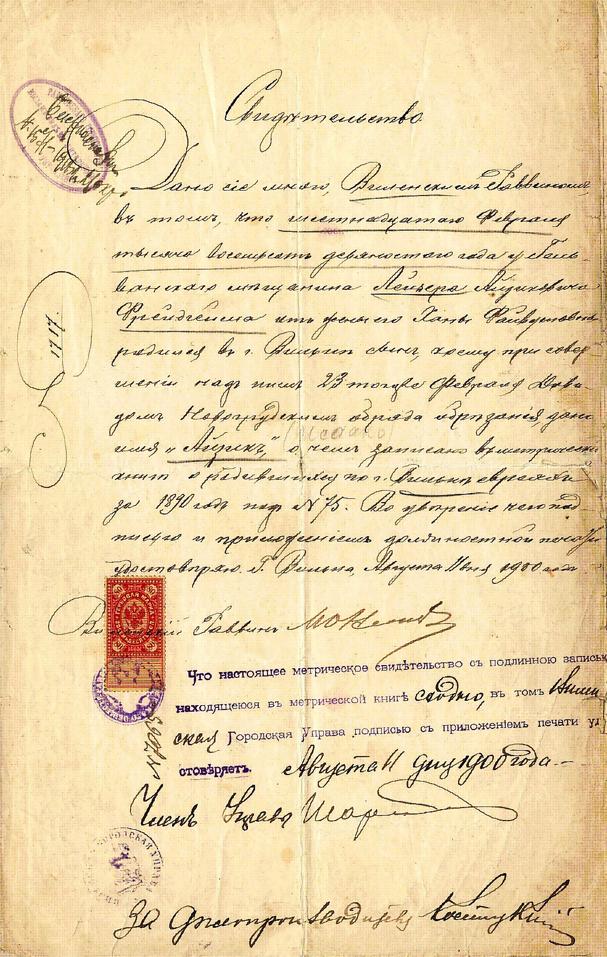 Свидѣтельство
Дано сіе мною, Виленскимъ Раввиномъ,
въ томъ, что шестнадцатаго Февраля
тысяча восемьсотъ девяностаго года у
мѣщанина Лейзера Айзиковича
Фрейдгейма отъ жены его Ханы
родился въ г. Вильнѣ сынъ, коему при совер
шеніи надъ нимъ 23 того же Февраля Дави
домъ Новогрудскимъ обряда обрѣзанія, дано
имя „Айзикъ“ о чемъ записано въ метрическ
книгѣ о родившихся по г. Вильнѣ евреяхъ
за 1890 годъ подъ № 75. Въ увѣреніе чего под
писью и приложеніемъ должностной печати
удостовѣряю. Г. Вильна, Августа 11 дня 1900 года
1717.
Виленскій Раввинъ
Что настоящее метрическое свидѣтельство съ подлинною запись
находящеюся въ метрической книгѣ сходно, въ томъ Вилен
ская Городская Управа подписью съ приложеніемъ печати у
стовѣряетъ. Августа 11 дня 1900 года
Членъ Управы
За Дѣлопроизводителя